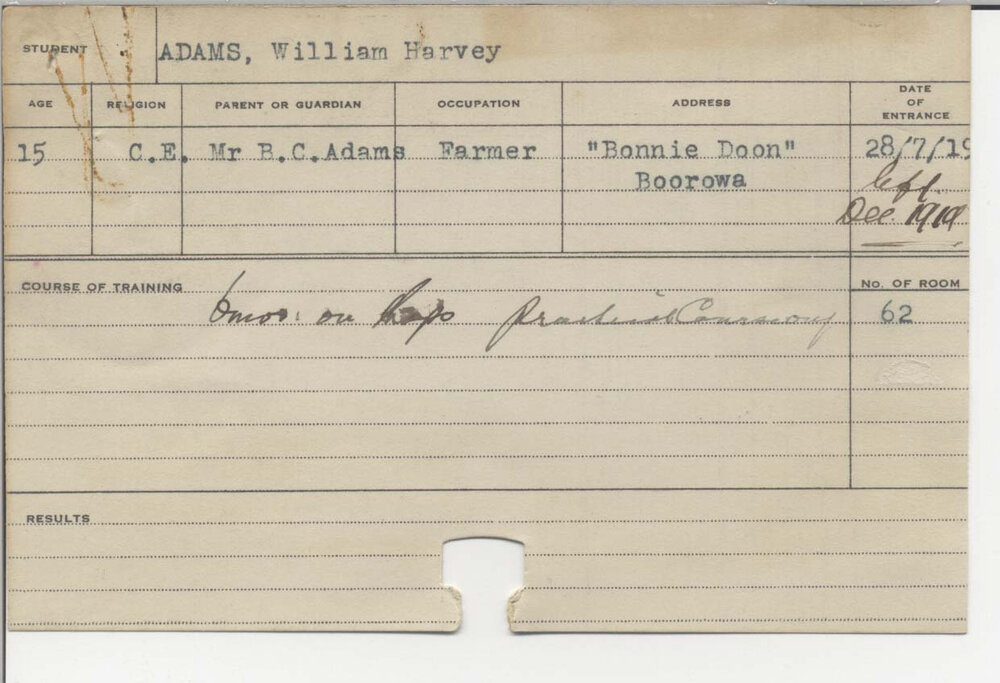 STUDENT ADAMS, William Harvey
AGE RELIGION PARENT OR GUARDIAN OCCUPATION ADDRESS DATE OF ENTRANCE
15 C.E. Mr B.C.Adams Farmer "Bonnie Doon" 28/7/19
Boorowa left
Dec. 1919
COURSE OF TRAINING No. OF ROOM
6mos: on 62
RESULTS